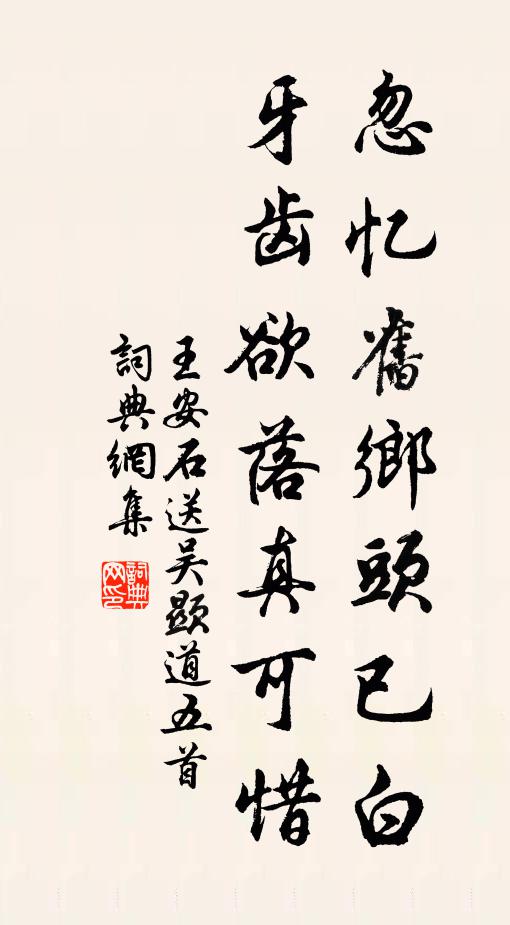 忽忆舊鄉頭已白
牙齿欲落真可惜
王安石送吴顯道五首
詞典網集
詞典网印